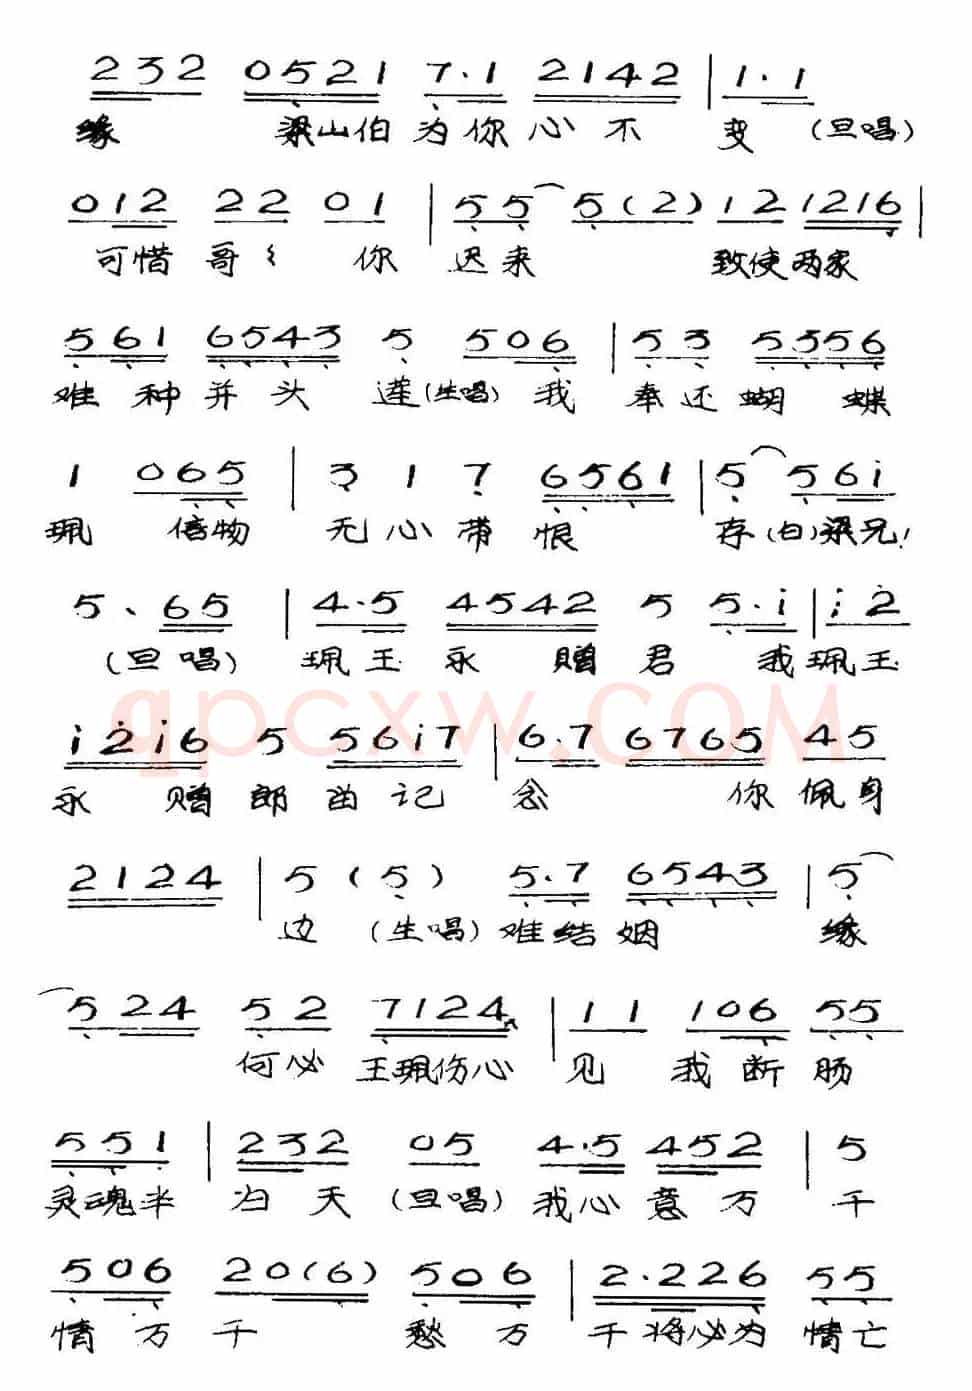 232 0521 7·1 2142 | 1·1
缘 梁山伯为你心不 变 (旦唱)
012 22 01 | 55 5(2) 12 1216 |
可惜 哥〻 你 迟来 致使两家
561 6543 5 506 | 53 5356
难种并头 莲(生唱) 我 奉还蝴 蝶
1 065 | 3 1 7 6561 | 5 561
珮 信物 无心带 恨 存(白)梁兄!
5、65 | 4·5 4542 5 5·i | i2
(旦唱) 珮玉 永 赠 君 我珮玉
i2i6 5 56i7 | 6·7 6765 45
永 赠 郎 留记 念 你 佩身
qpcxw.COM
2124 | 5 (5) 5·7 6543 | 5
边 (生唱) 难结姻 缘
524 52 7124 | 11 106 55
何必 玉珮伤心 见 我断 肠
551 | 232 05 4·5 452 | 5
灵魂半 归天 (旦唱) 我心意万 千
506 20(6) 506 | 2·226 55
情万 千 愁万 千将必为 情亡